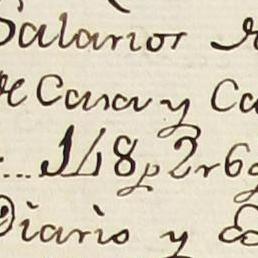 Salarios
de Casa y Ca
148p2r6g
Diario y